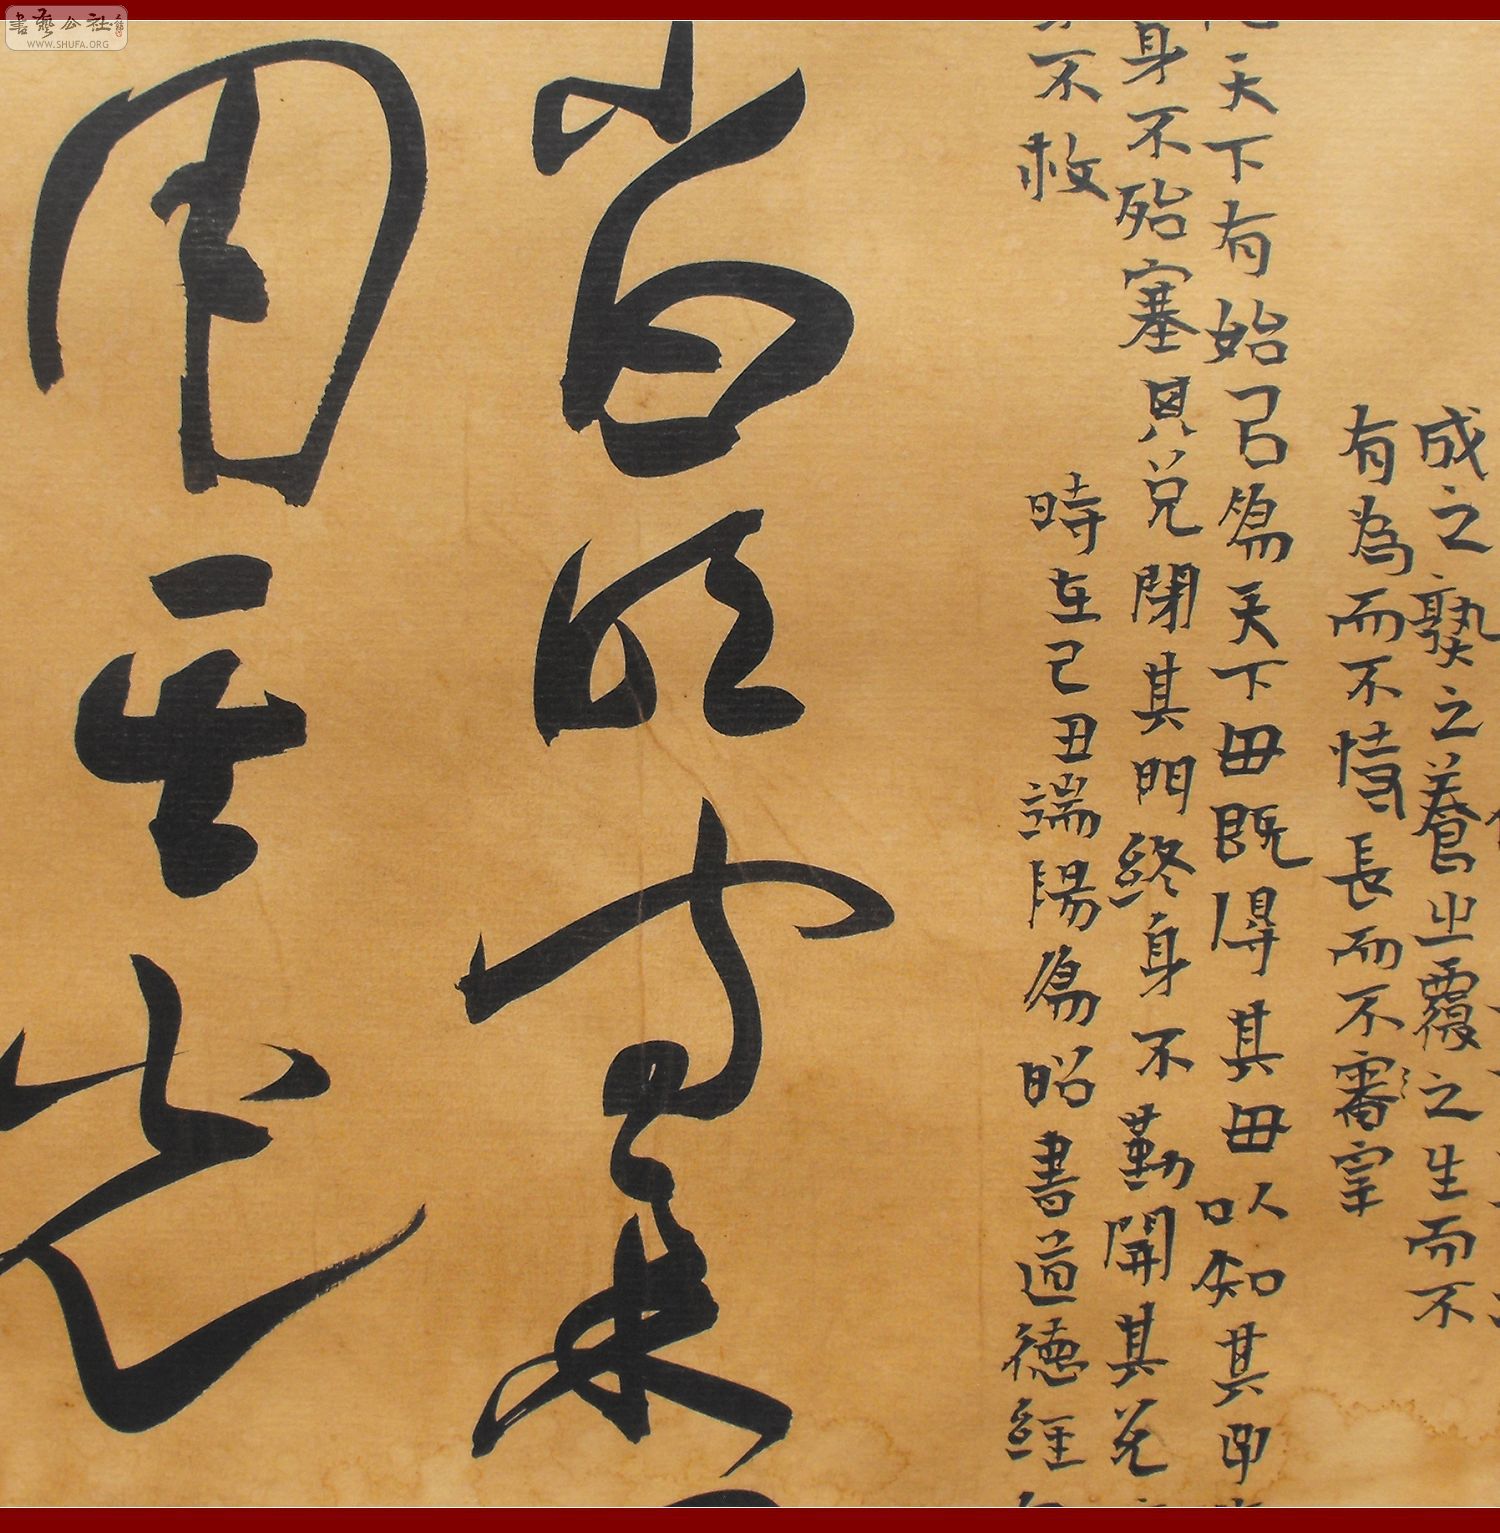 成之熟之養之覆之生而不
有為而不恃長而不宰
天下有始以為天下母既得其母以知其
身不殆塞其兌閉其門終身不勤開其兌
不救
時在己丑端陽為昭書道德經
小曰明守柔
用其光
書藝公社
WWW.SHUFA.ORG